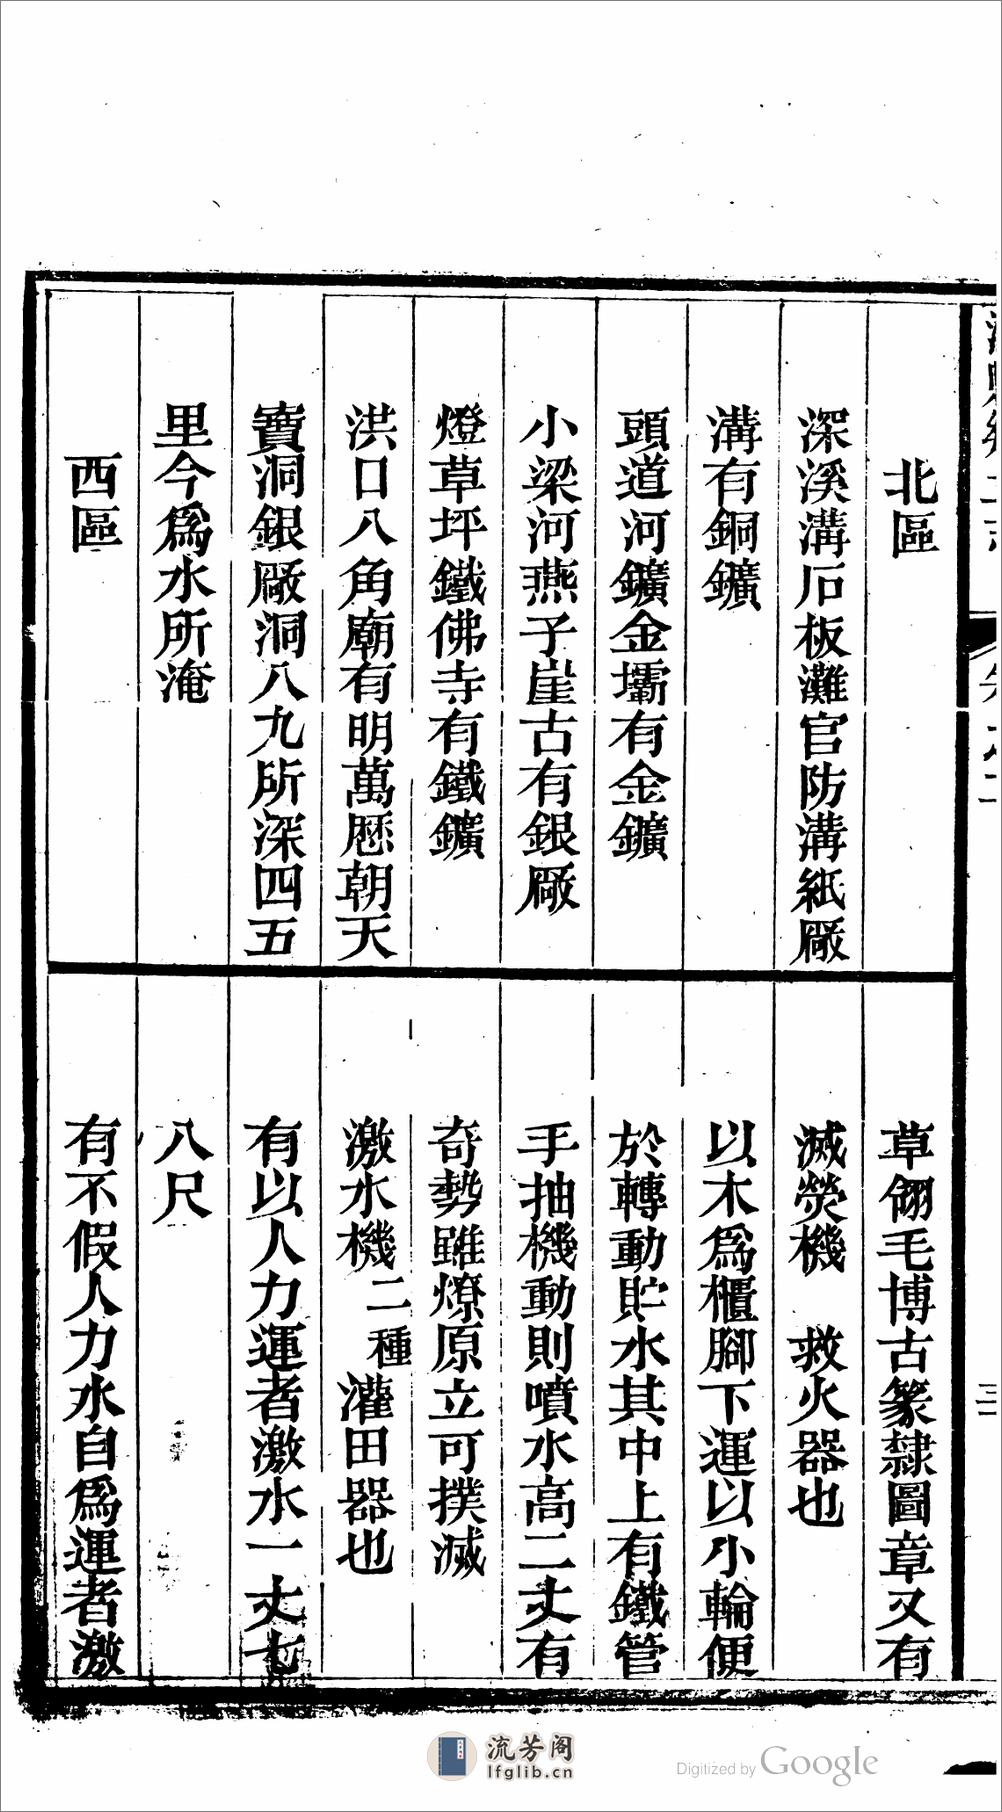 北區
深溪溝石板灘官防溝紙厰
溝有銅鑛
頭道河鑛金壩有金鑛
小梁河燕子崖古有銀厰
燈草坪鐵佛寺有鐵鑛
洪口八角廟有明萬厯朝天
寶洞銀厰洞八九所深四五
里今爲水所淹
西區
草翎毛博古篆隸圖章又有
滅熒機 救火器也
以木爲櫃腳下運以小輪便
於轉動貯水其中上有鐵管
手抽機動則噴水高二丈有
奇勢雖燎原立可撲滅
激水機二種灌田器也
有以人力運者激水一丈七
八尺
有不假人力水自爲運者激
流芳阁
lfglib.cn
Digitized by Google